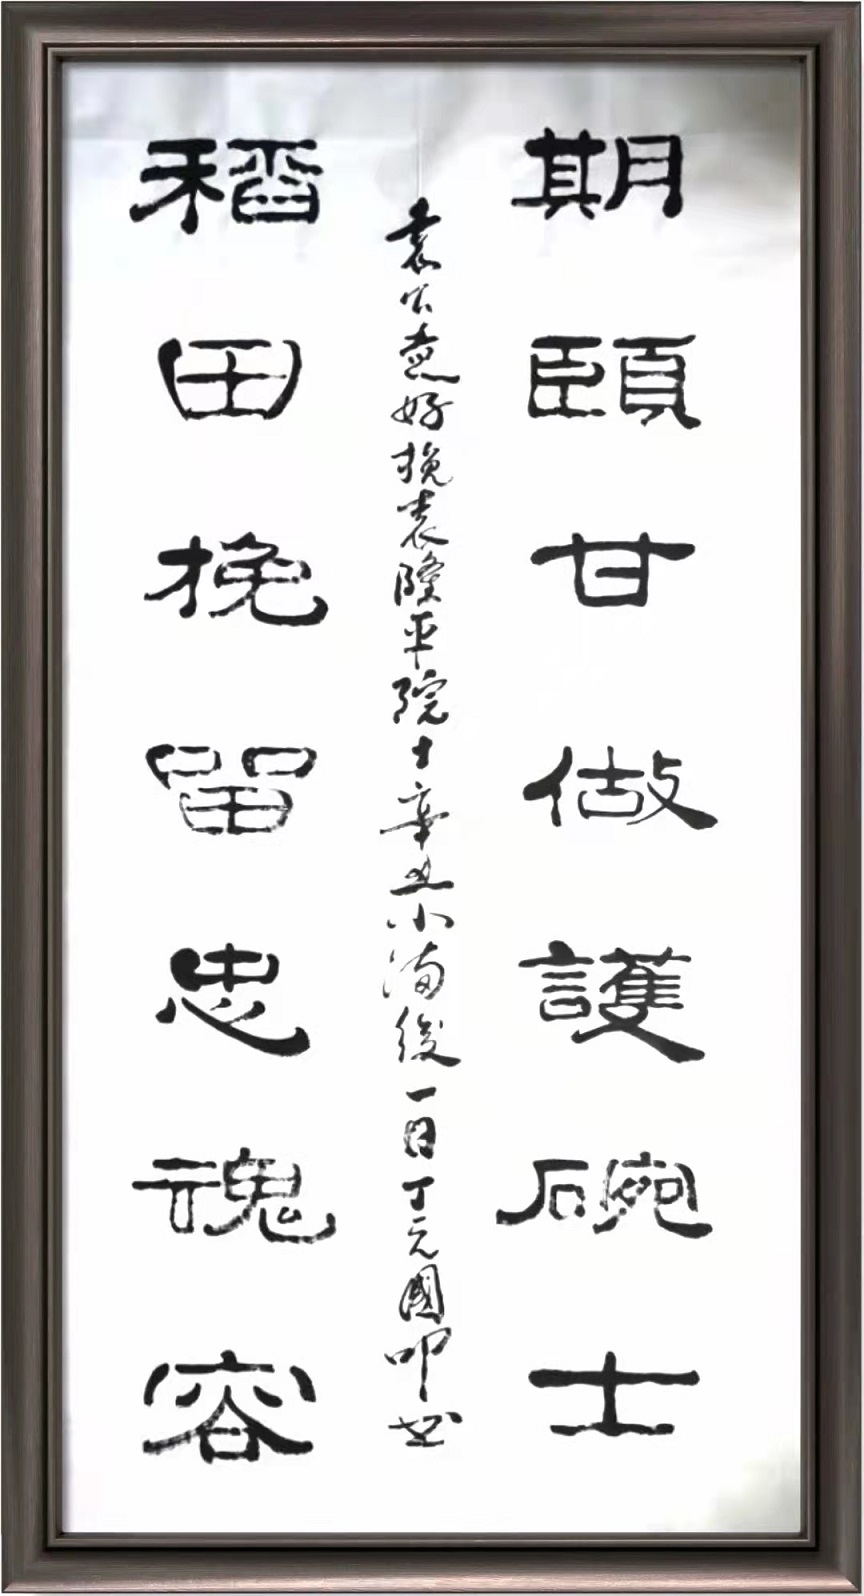 期頤甘做護碗士
袁公走好挽袁隆平院士辛丑小滿後一日丁元國叩书
稻田挽留忠魂容